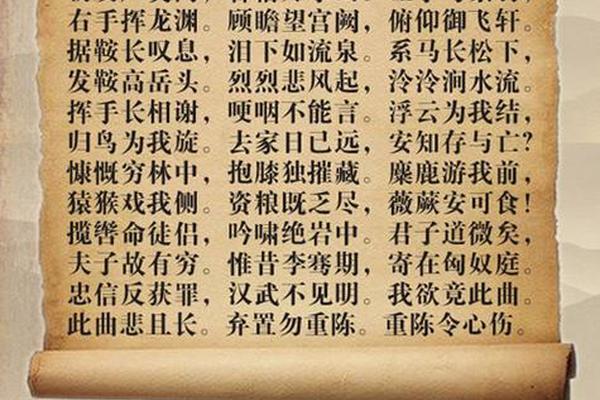 右手挥龙渊。顾瞻望宫阙，俯仰御飞轩。
据鞍长叹息，泪下如流泉。系马长松下，
发鞍高岳头。烈烈悲风起，泠泠涧水流。
挥手长相谢，哽咽不能言。浮云为我结，
归鸟为我旋。去家日已远，安知存与亡？
慷慨穷林中，抱膝独摧藏。麋鹿游我前，
猿猴戏我侧。资粮既乏尽，薇蕨安可食！
揽辔命徒侣，吟啸绝岩中。君子道微矣，
夫子故有穷。惟昔李骞期，寄在匈奴庭。
忠信反获罪，汉武不见明。我欲竟此曲。
此曲悲且长。弃置勿重陈。重陈令心伤。